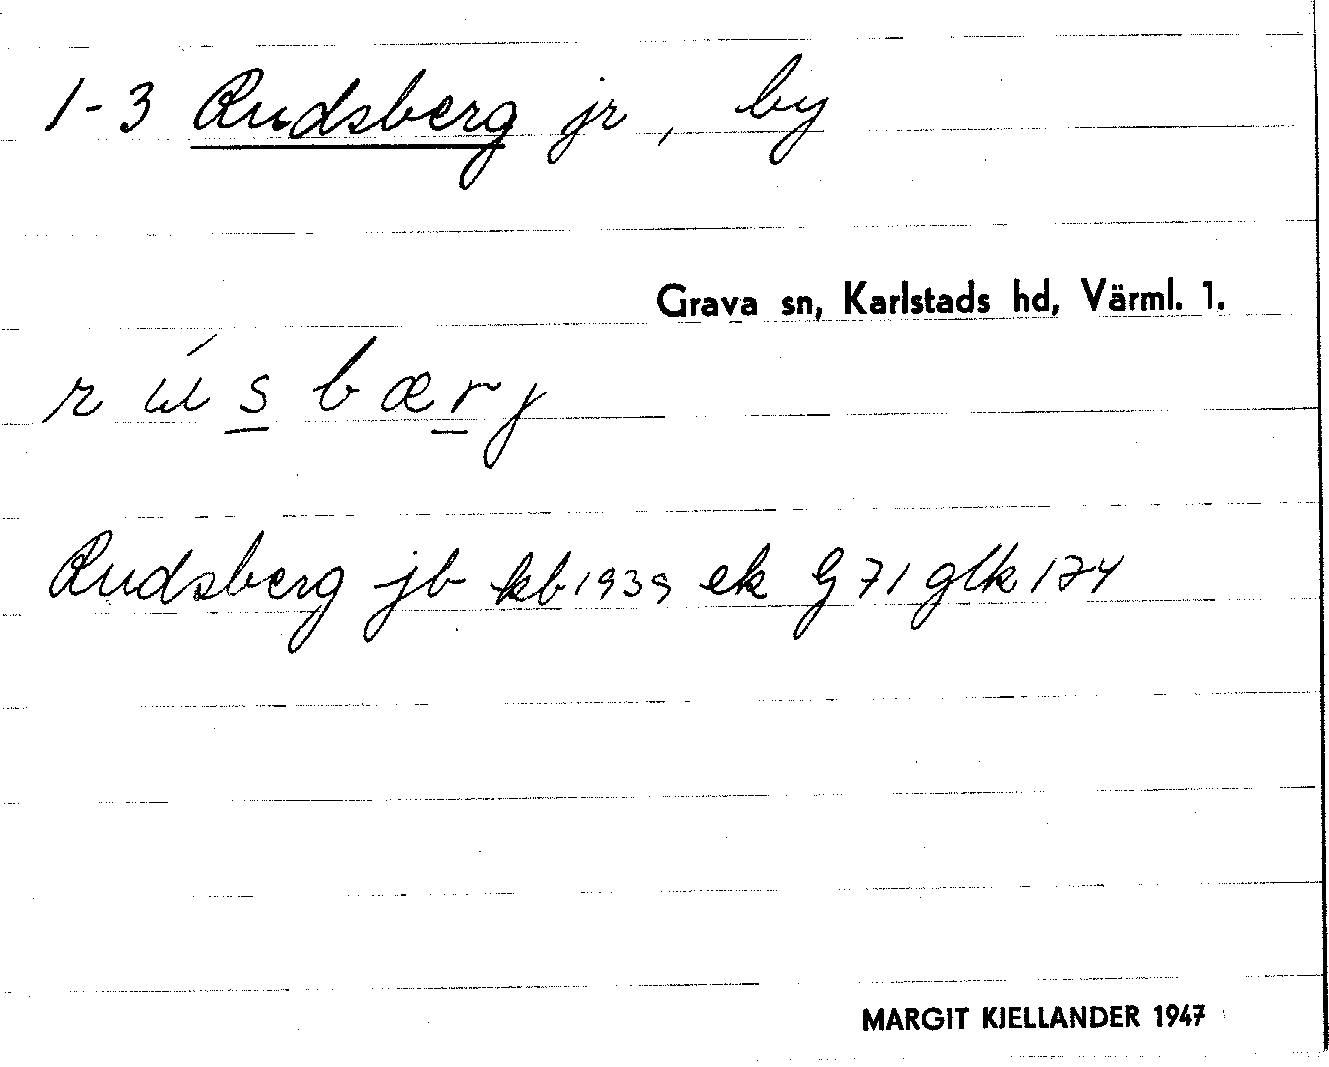 1-3 Rudsberg jr, by
Grava sn, Karlstads hd, Värml. 1.
r ú s b æ r j
Rudsberg jb kb 1939 ek G 71 glk 174
MARGIT KJELLANDER 1947